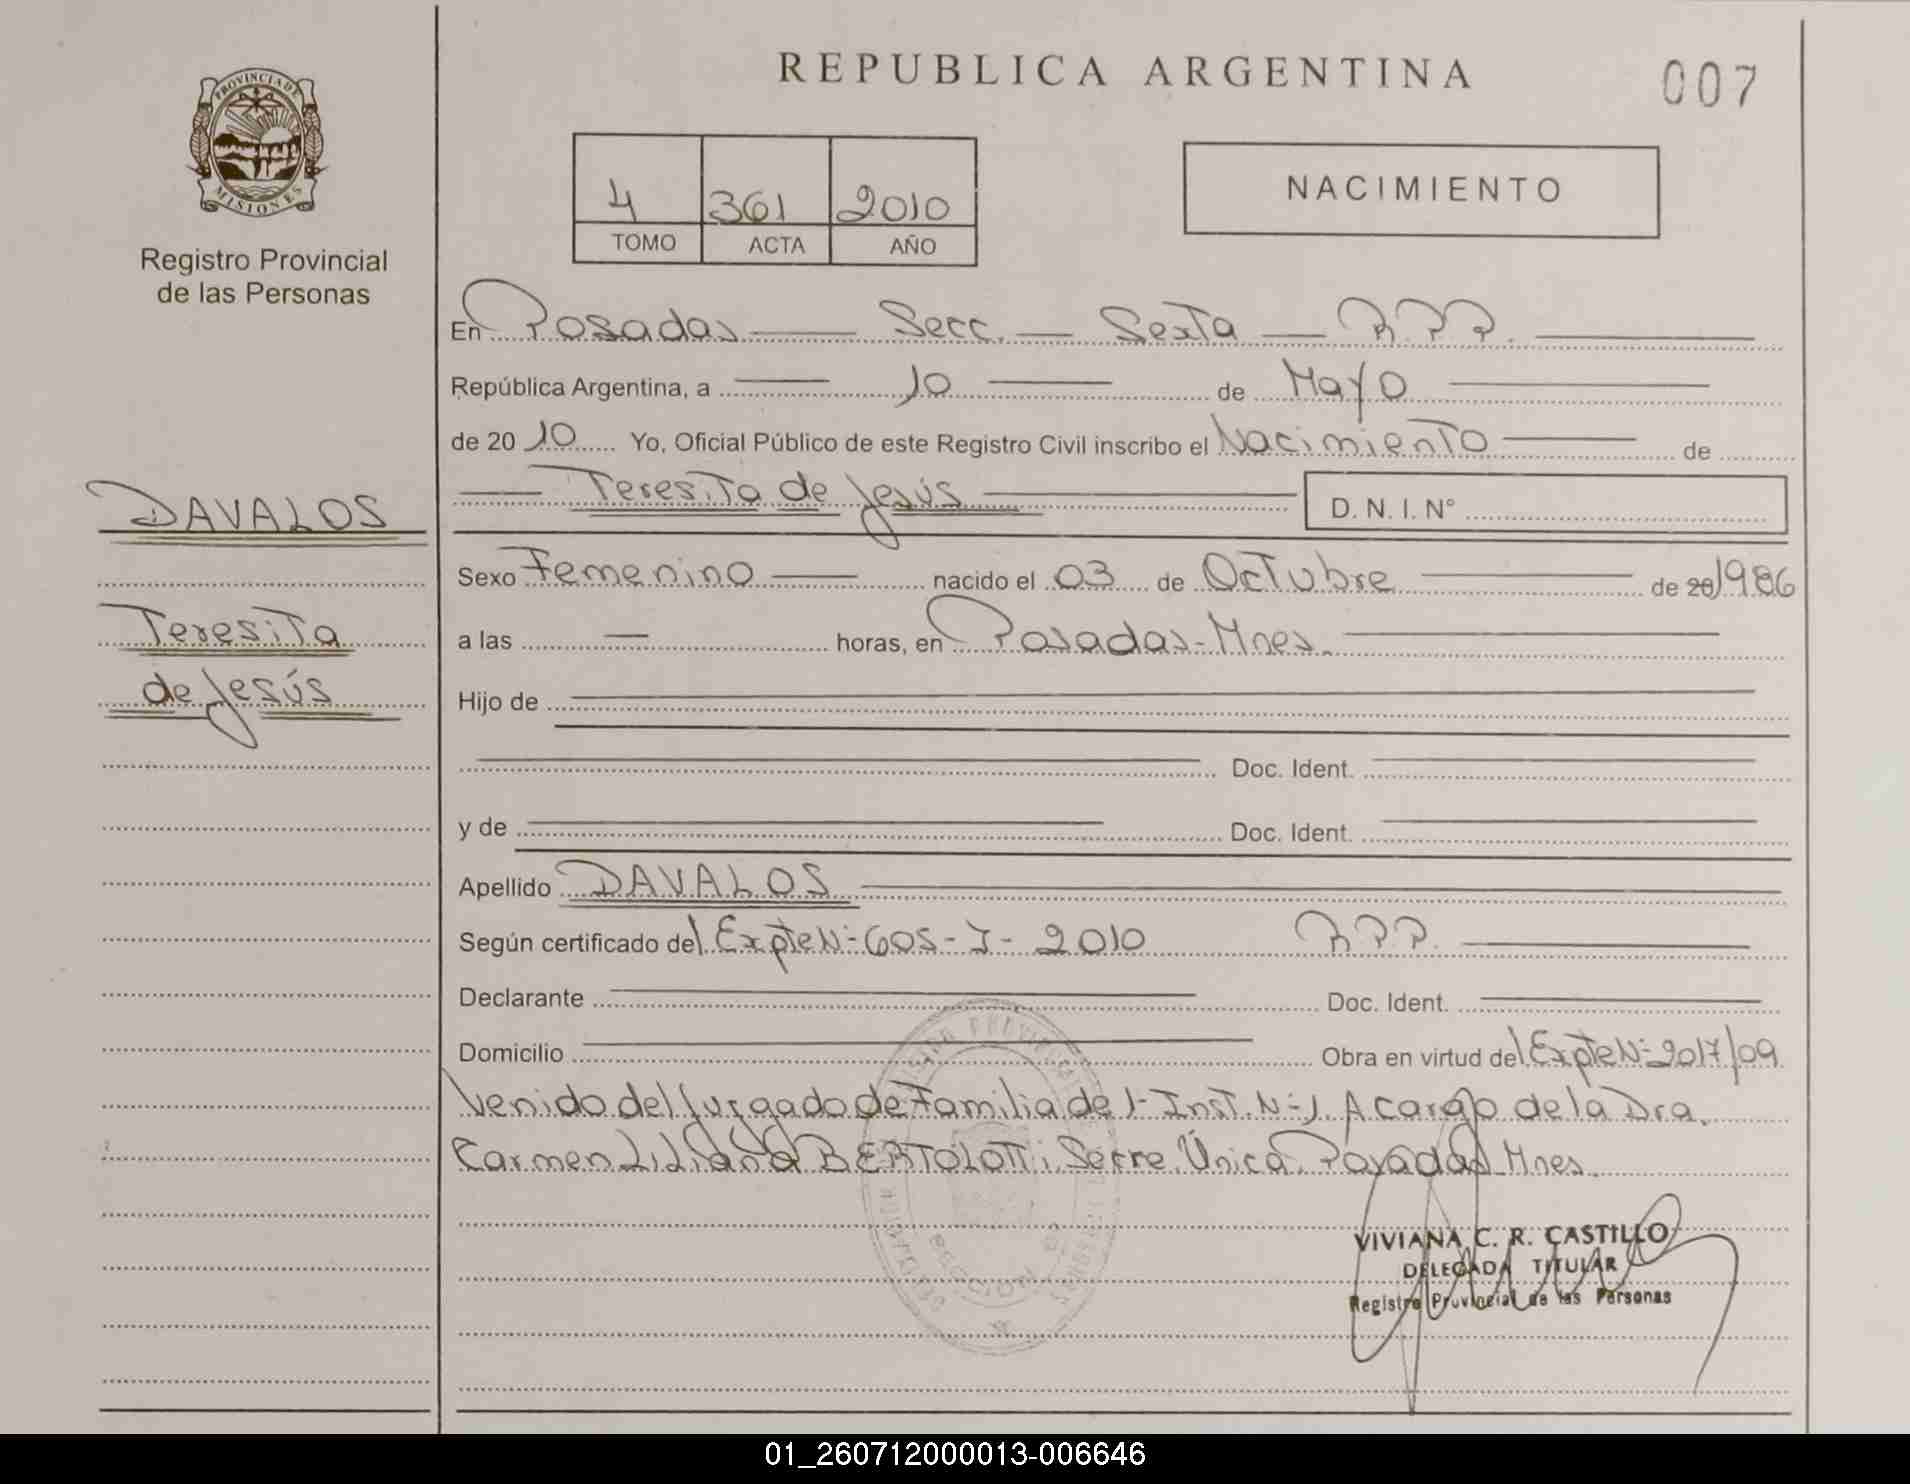 REPUBLICA ARGENTINA
007
PROVINCIA DE
MISIONES
Registro Provincial
de las Personas
4 361 2010
TOMO ACTA AÑO
NACIMIENTO
En Posadas Secc. Sexta R.P.P.
República Argentina, a 10 de Mayo
de 20 10 Yo, Oficial Público de este Registro Civil inscribo el Nacimiento de
Teresita de Jesús D. N. I. N°
DAVALOS
Teresita
de Jesús
Sexo Femenino nacido el 03 de Octubre de 20 1986
a las horas, en Posadas-Mnes.
Hijo de
Doc. Ident.
y de Doc. Ident.
Apellido DAVALOS
Según certificado del Expte N- 605-J- 2010 R.P.P.
Declarante Doc. Ident.
Domicilio Obra en virtud del Expte N- 2017/09
Venido del Juzgado de Familia de 1- Inst. N-1. A cargo de la Dra.
Carmen Liliana BERTOLOTTI, Secre. Única. Posadas Mnes.
VIVIANA C. R. CASTILLO
DELEGADA TITULAR
Registro Provincial de las Personas
01_260712000013-006646